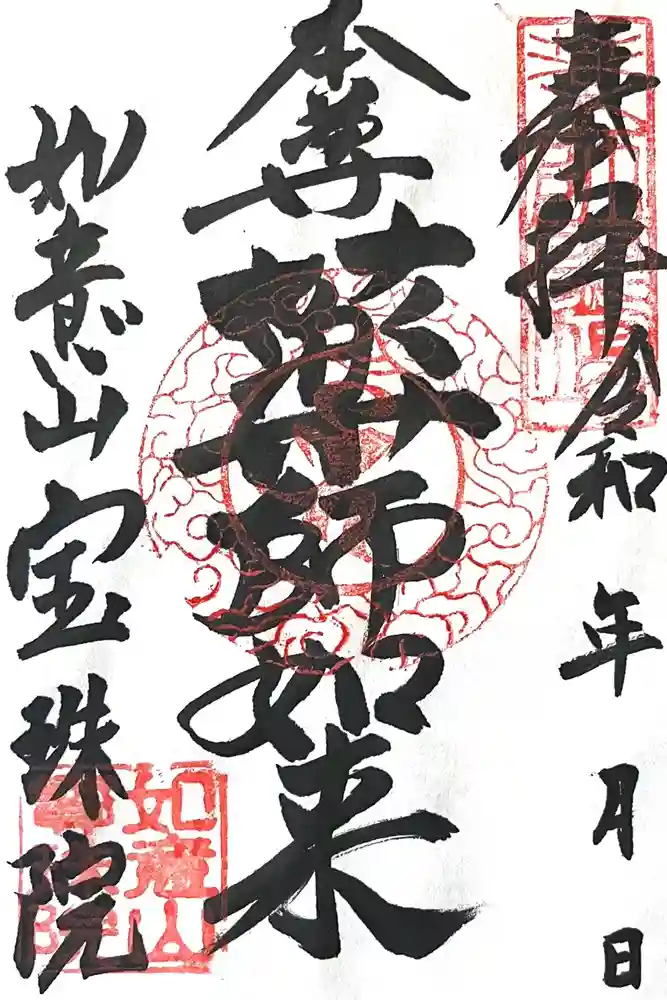 奉拝 令和 年 月 日
本尊薬師如来
如意山 宝珠院
如意山